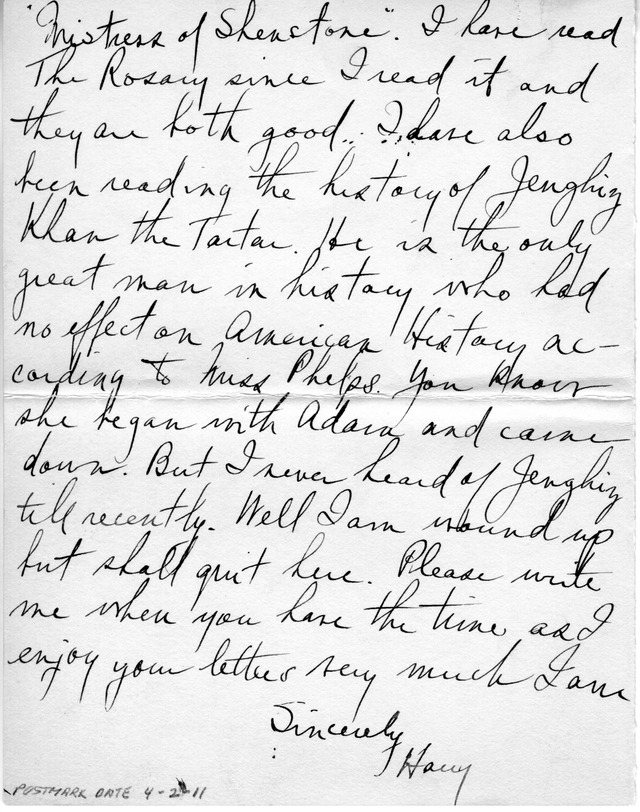 "Mistress of Shenstone". I have read
The Rosary since I read it and
they are both good. I have also
been reading the history of Jenghiz
Khan the Tartar. He is the only
great man in history who had
no effect on American History ac-
cording to Miss Phelps. You know
she began with Adam and came
down. But I never heard of Jenghiz
till recently. Well I am wound up
but shall quit here. Please write
me when you have the time as I
enjoy your letters very much I am
Sincerely
Harry
POSTMARK DATE 4-2-11